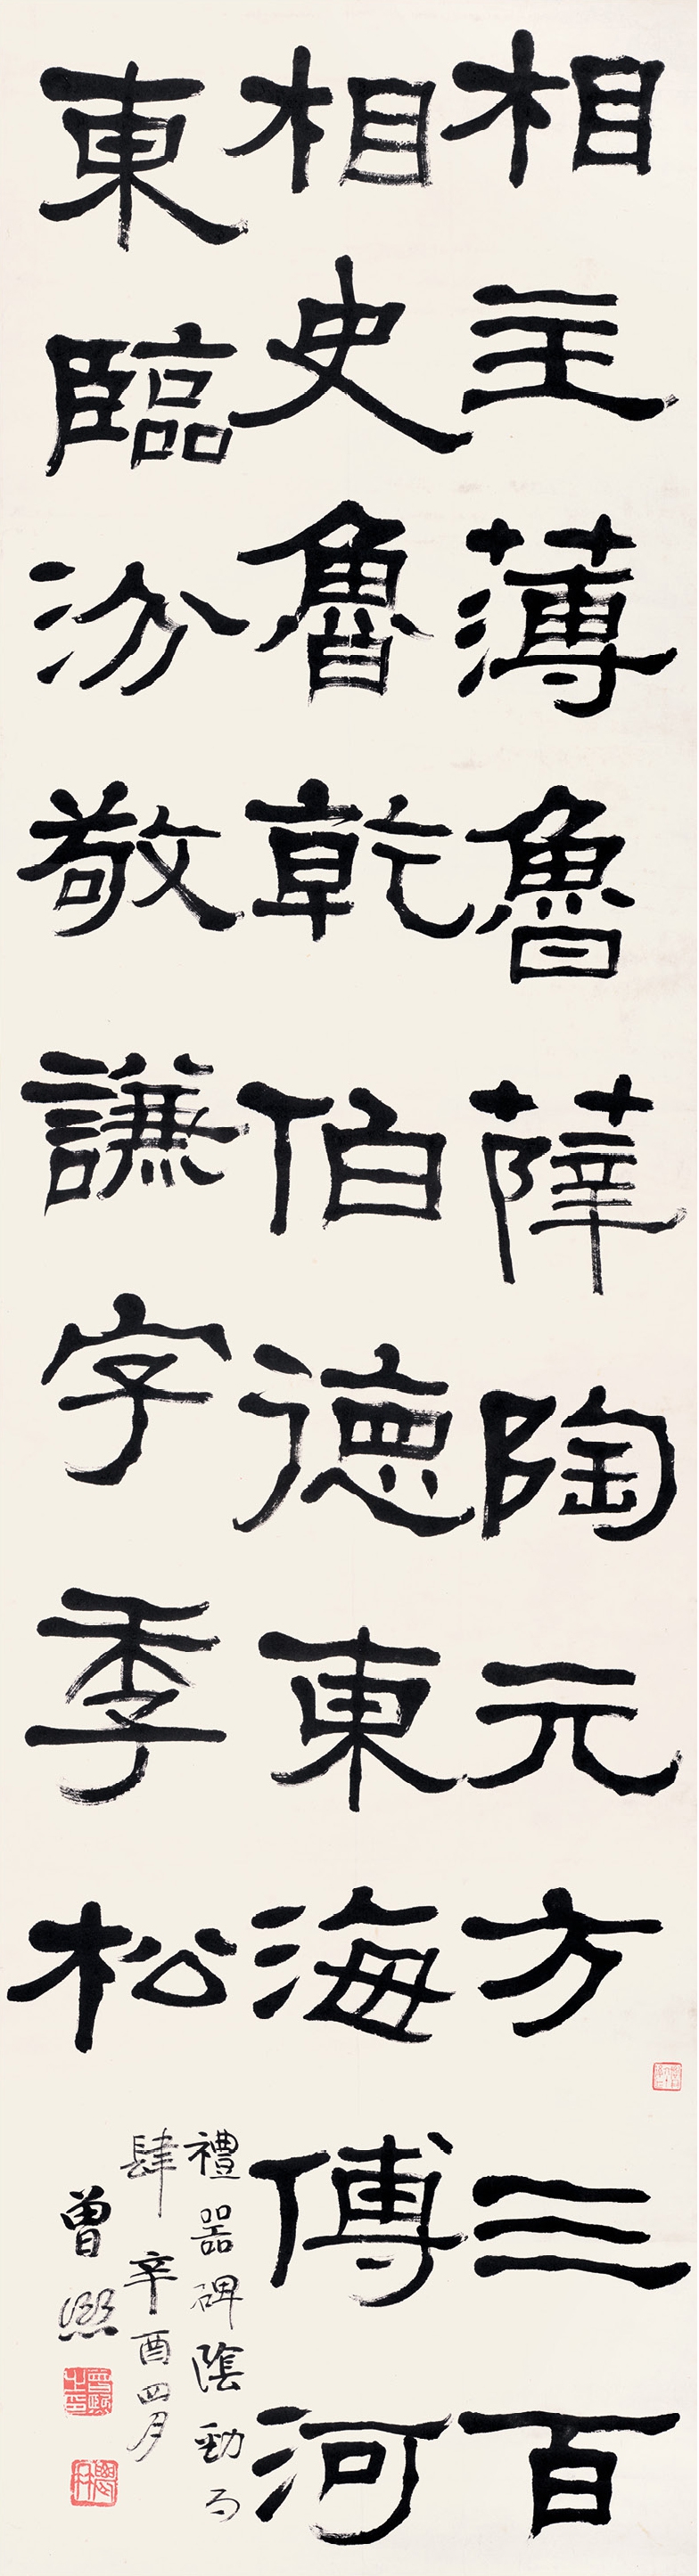 相主薄魯薛陶元方三百
相史魯乾伯德東海傅河
東臨汾敬謙字季松
禮器碑陰勁而
肆辛酉四月
曾熙